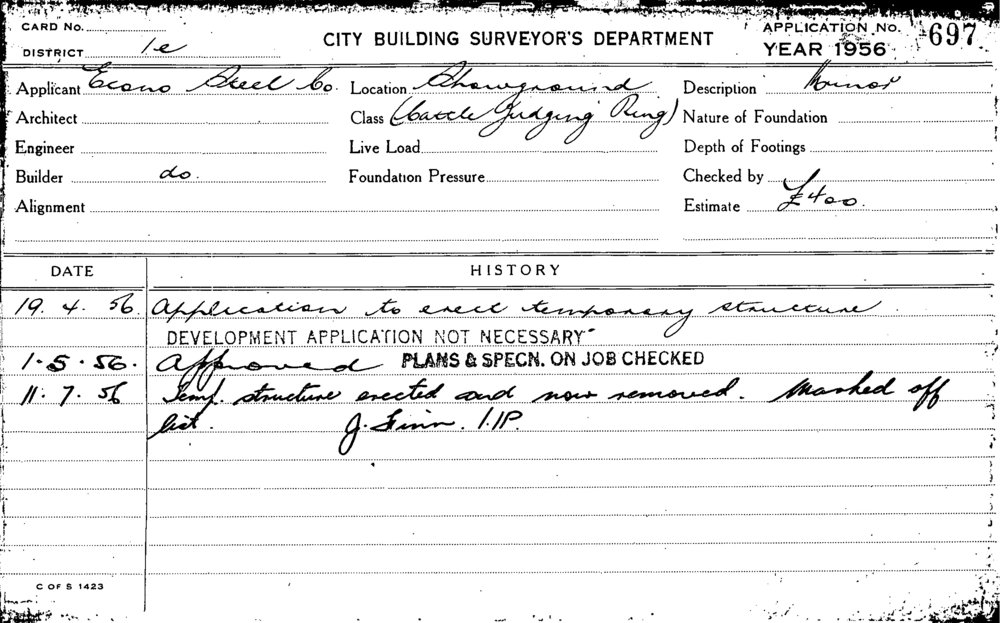 CARD No.
DISTRICT 1e
CITY BUILDING SURVEYOR'S DEPARTMENT
APPLICATION No. 697
YEAR 1956
Applicant Econo Steel Co. Location Showground Description Minor
Architect Class (Cattle Judging Ring) Nature of Foundation
Engineer Live Load Depth of Footings
Builder do. Foundation Pressure Checked by
Alignment Estimate £400.
DATE HISTORY
19. 4. 56. Application to erect temporary structure
DEVELOPMENT APPLICATION NOT NECESSARY
1. 5. 56. Approved PLANS & SPECN. ON JOB CHECKED
11. 7. 56 Temp. structure erected and now removed. Marked off
list. J. Finn.
C OF S 1423